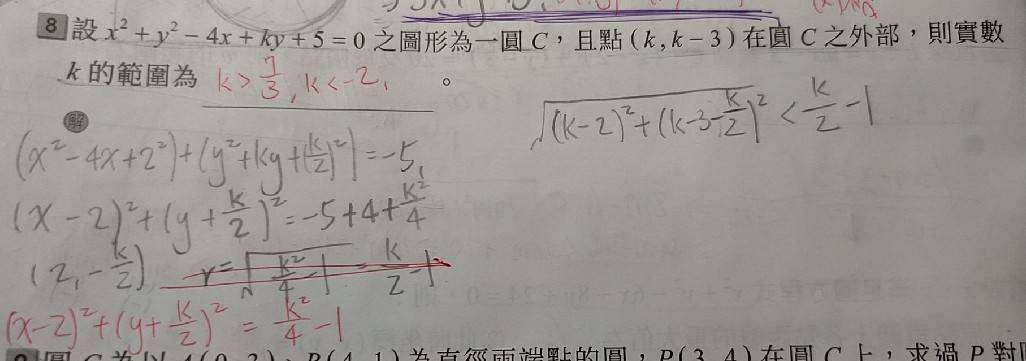 8 設 x² + y² − 4x + ky + 5 = 0 之圖形為一圓 C，且點 (k, k − 3) 在圓 C 之外部，則實數
k 的範圍為 k > 7/3, k < -2, 。
√(k-2)² + (k-3-k/2)² < k/2 - 1
解
(x² - 4x + 2²) + (y² + ky + (k/2)²) = -5,
(x - 2)² + (y + k/2)² = -5 + 4 + k²/4
(2, -k/2) r = √k²/4 - 1 = k/2 - 1
(x-2)² + (y + k/2)² = k²/4 - 1
圓 C 為以 A(0, 2)、B(4, 1) 為直徑兩端點的圓，P(3, 4) 在圓 C 上，求過 P 對